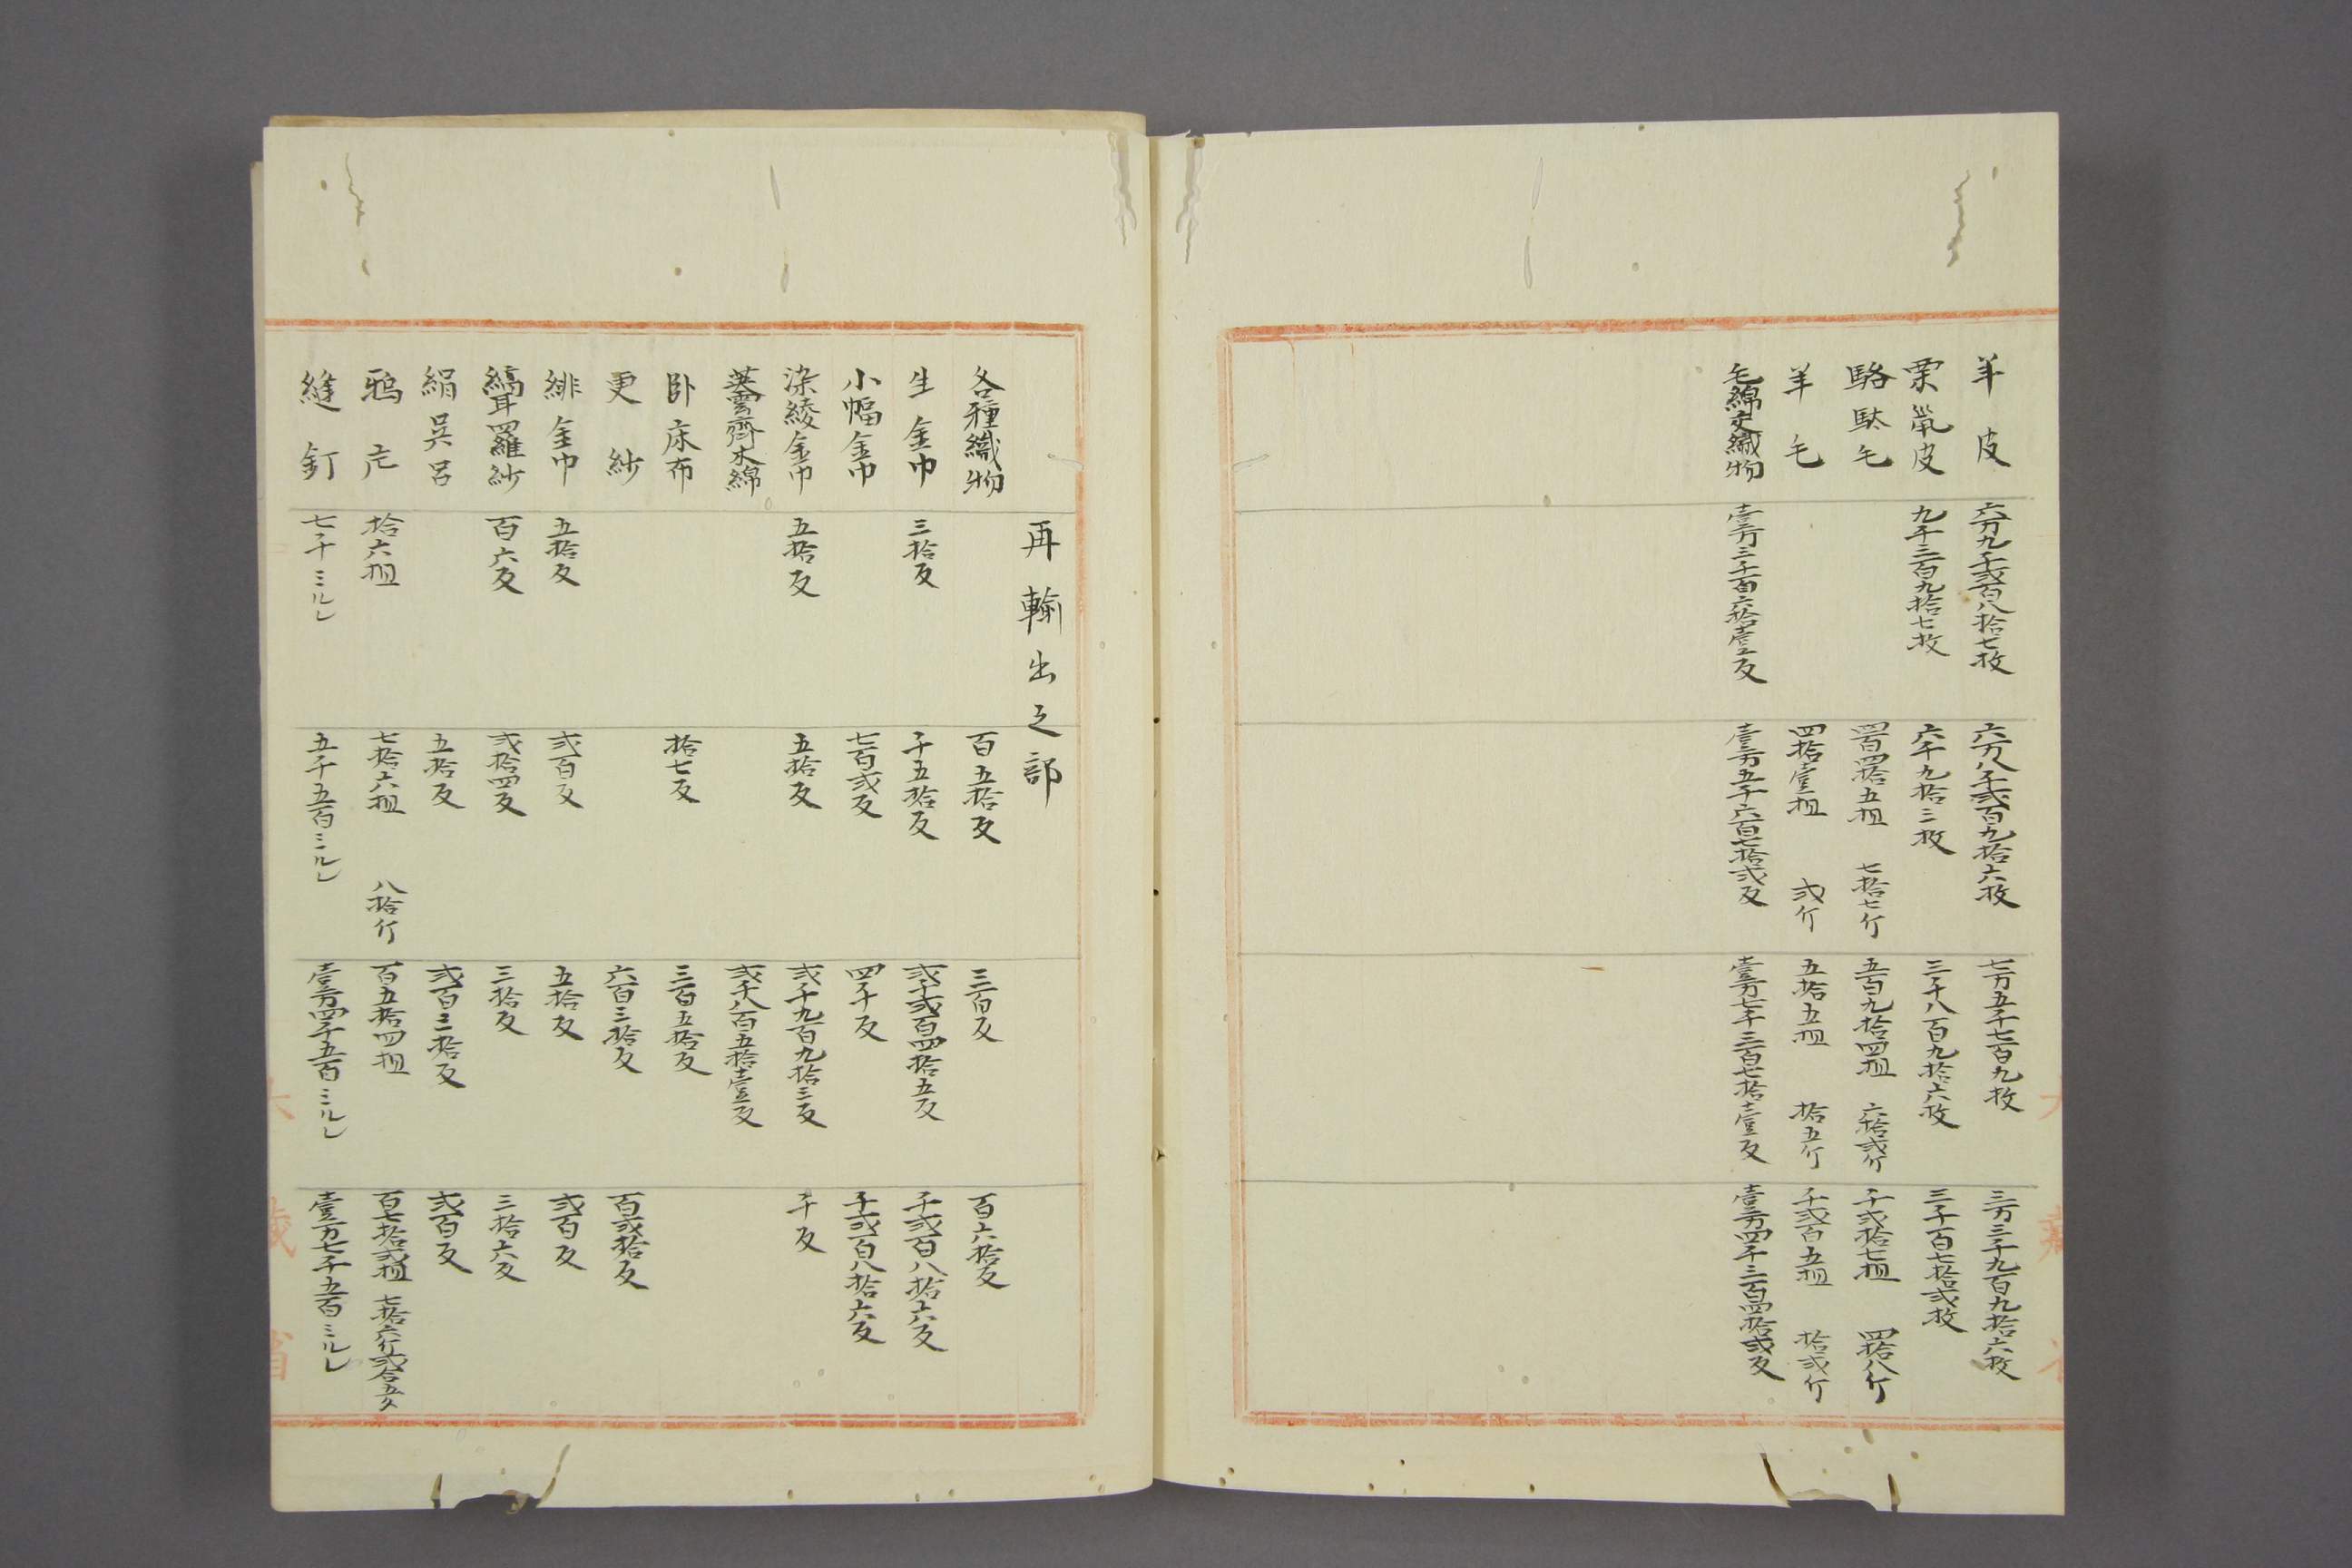 羊皮 六万九千弐百八拾七枚 六万八千弐百九拾六枚 七万五千七百九枚 三万三千九百九拾六枚
栗鼠皮 九千三百九拾七枚 六千九拾三枚 三千八百九拾六枚 三千百七拾弐枚
駱駄毛 四百四拾五梱 七拾七斤 五百九拾四梱 六拾弐斤 千弐拾七梱 四拾八斤
羊毛 四拾壹梱 弐斤 五拾五梱 拾五斤 千弐百五梱 拾弐斤
毛綿交織物 壹万三千百六拾壹反 壹万五千六百七拾弐反 壹万七千三百七拾壹反 壹万四千三百四拾弐反
再輸出之部
各種織物 百五拾反 三百反 百六拾反
生金巾 三拾反 千五拾反 弐千弐百四拾五反 千弐百八拾六反
小幅金巾 七百弐反 四千反 千弐百八拾六反
染綾金巾 五拾反 五拾反 弐千九百九拾三反 千反
葵雲齊木綿 弐千八百五拾壹反
卧床布 拾七反 三百五拾反
更紗 六百三拾反 百弐拾反
緋金巾 五拾反 弐百反 五拾反 弐百反
縞耳羅紗 百六反 弐拾四反 三拾反 三拾六反
絹呉呂 五拾反 弐百三拾反 弐百反
鴉片 拾六梱 七拾六梱 八拾斤 百五拾四梱 百七拾弐梱 七拾六斤弐合五夕
縫釘 七千ミルレ 五千五百ミルレ 壹万四千五百ミルレ 壹万七千五百ミルレ
大藏省